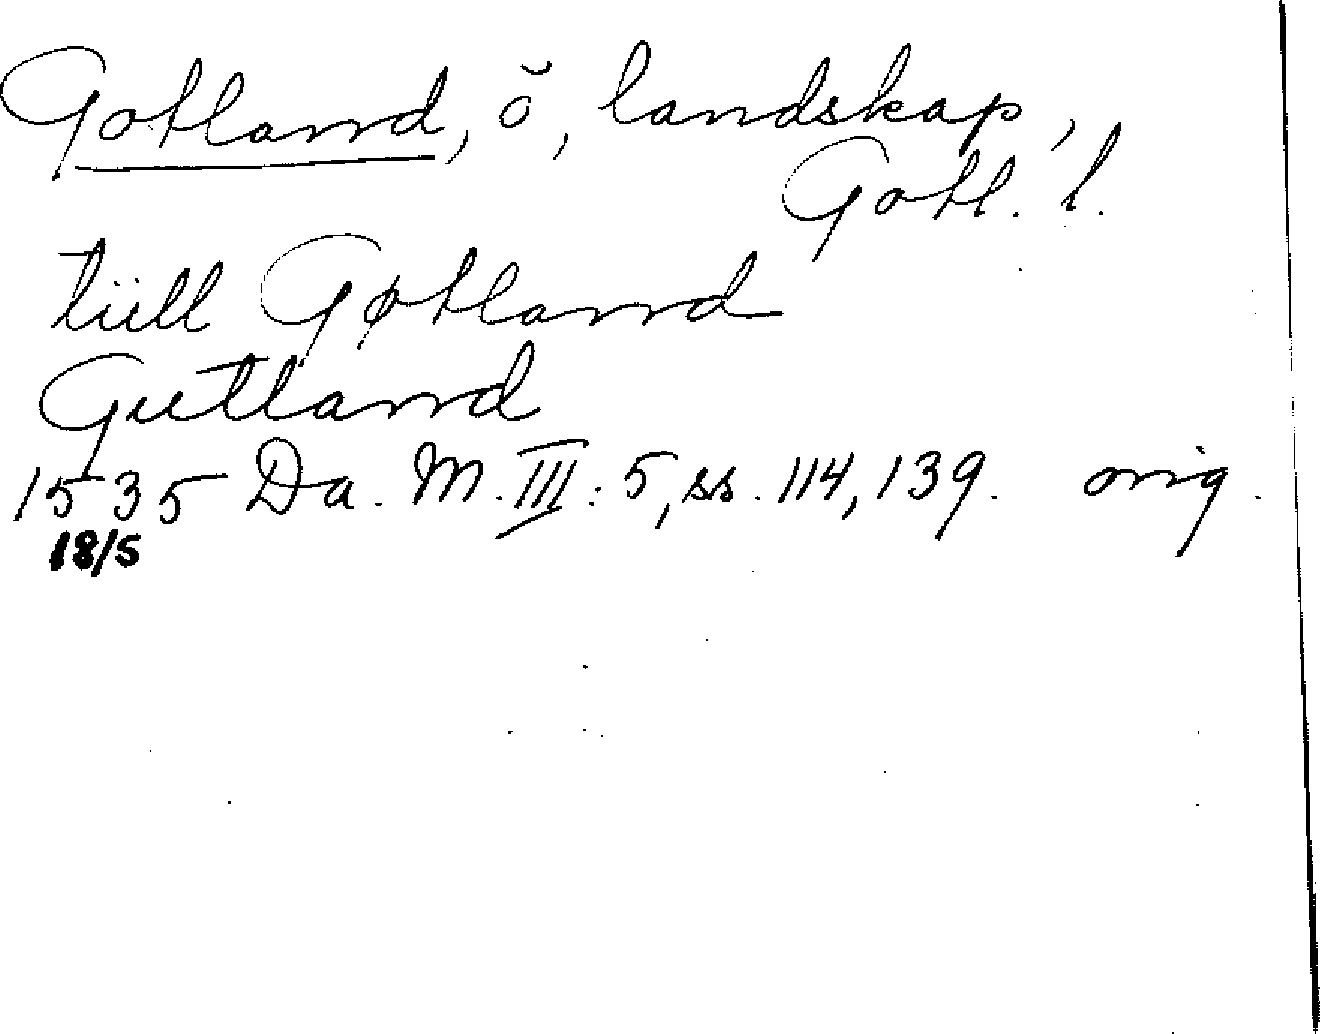 Gotland, ö, landskap,
Gotl. l.
tüll Gøtland
Gutland
1535 Da. M. III: 5, ss. 114, 139. orig.
18/5